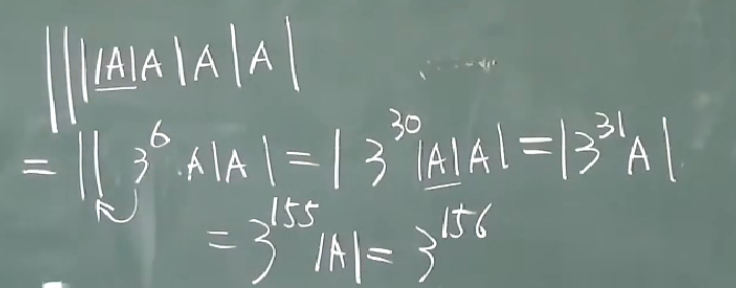 ||||A|A|A|A|
= || 3^6 · A|A| = | 3^{30} |A|A| = |3^{31} A|
= 3^{155} |A| = 3^{156}